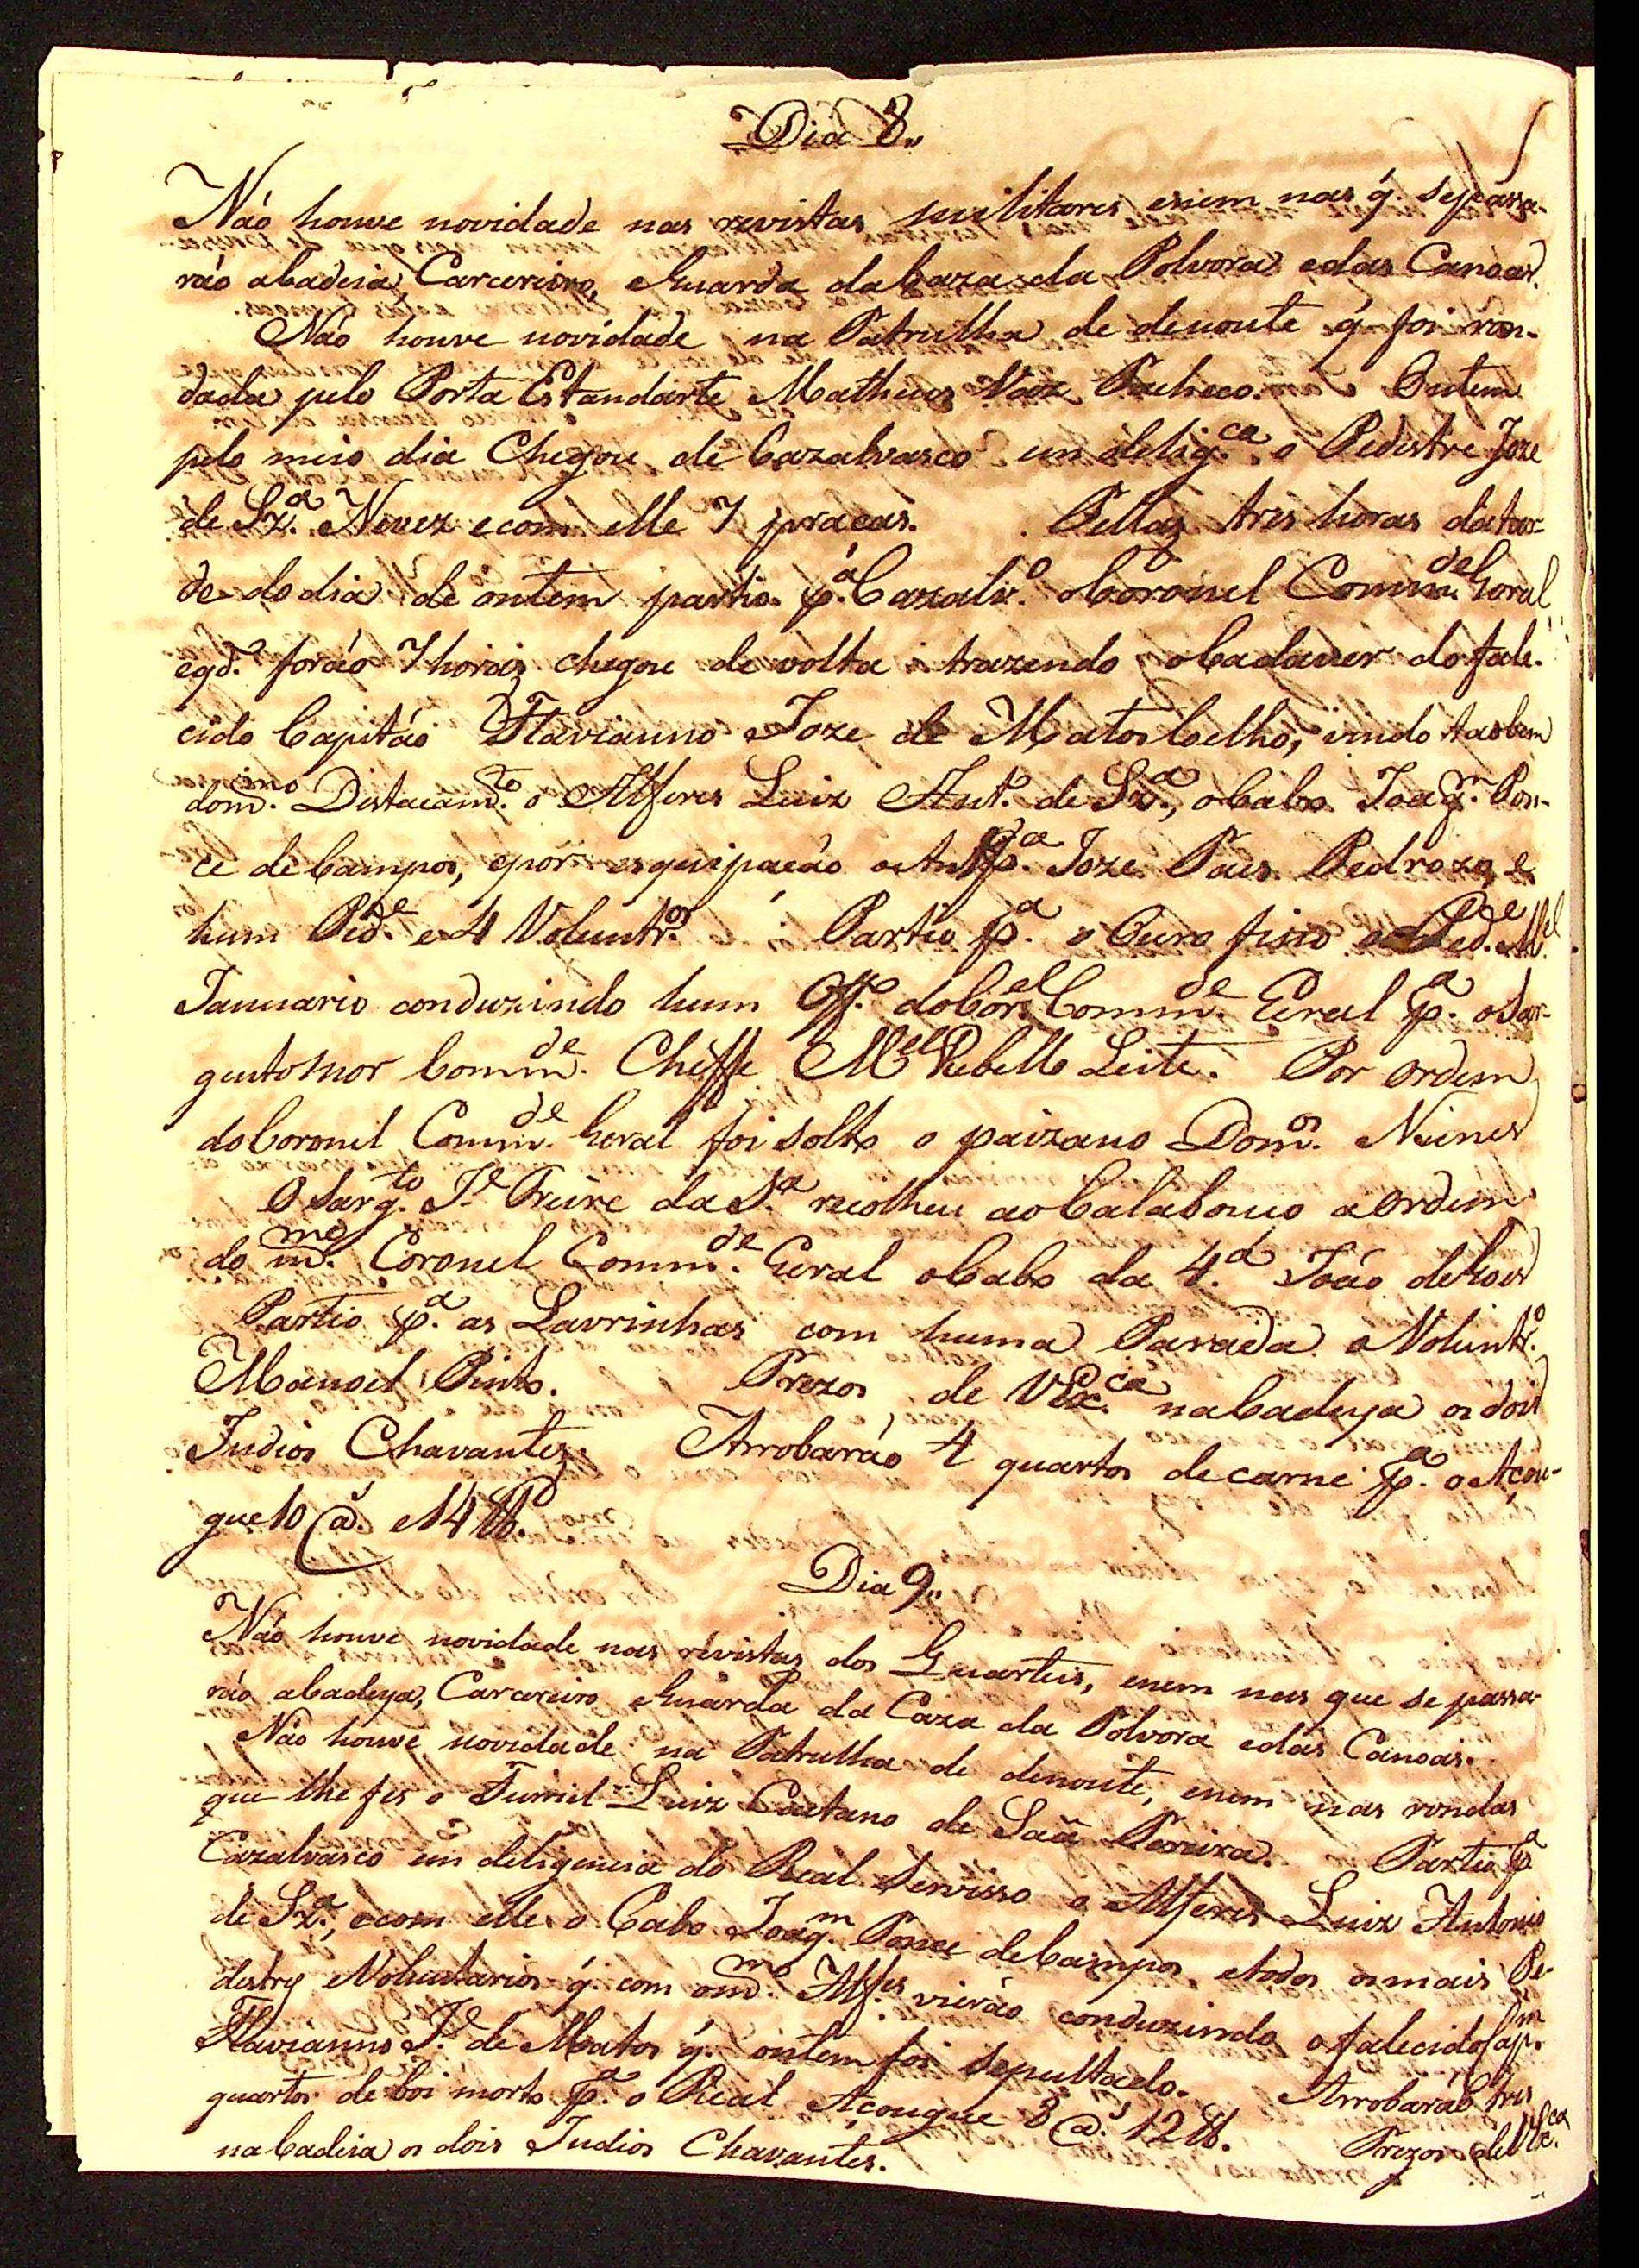 Dia 8,,
Não houve novidade nas revistas militares enem nas q̃. sepassa-
rão abadeia, Carcereiro, eGuarda daCaza da Polvora edas Canoas.
Não houve novidade na Patrulha de denoute q̃ foi ron-
dada pelo Porta Estandarte Matheus Vaz Pacheco. Ontem
pelo meio dia Chegou de Cazalvasco em delig.ca o Pedestre Joze
de Sz.a Nevez ecom elle 7 pracas. Pellas tres horas datar-
de do dia de ontem partio p.a Cazalv.o oCoronel Comm.de Geral
eqd.o forão 7 horas chegou de volta trazendo oCadaver dofale-
cido Capitão Flavianno Joze de Matos Coelho, vindo taobem
dom.mo Distacam.to o Alferes Luiz Ant.o de Sz.a, oCabo Joaq.m Pon-
ce deCampos, epor esquipacão o Anspa.a Joze Paes Pedrozo, e
hum Ped.e e 4 Voluntr.os Partio p.a o Ouro fino o Ped.e M.el
Januario conduzindo hum Off.o doCor.el Comm.de Geral p.a oSar-
gentomor Comm.de Cheffe M.el Rebello Leite. Por ordem
doCoronel Comm.de Geral foi solto o paizano Dom.os Nunes
O Sarg.to J.e Freire da S.a recolheu aoCalabouço aordem
do m.mo Coronel Comm.de Geral oCabo da 4.a João deGoes
Partio p.a as Lavrinhas com huma Parada o Voluntr.o
Manoel Pinto. Prezos de VEx.cia nabadeya os dois
Indios Chavantes. Arrobarão 4 quartos decarne p.a oAçou-
gue 10 @.s e 14 ℔.
Dia 9,,
Não houve novidade nas revistas dos Quarteis, enem nas que se passa-
rão abadeya, Carcereiro eGuarda da Caza da Polvora edas Canoas.
Não houve novidade na Patrulha de denoute, enem nas rondas
que lhe fes o Furriel Luiz Caetano de Saã Pereira. Partio p.a
Cazalvasco em deligencia do Real Servisso o Alferes Luiz Antonio
de Sz.a, ecom elle o Cabo Joaq.m Ponce deCampos, etodos osmais Pe-
destres eVoluntarios q̃. com om.mo Alf.es vierão conduzindo ofalecidoCap.m
Flavianno J.e de Matos q̃. ontem foi sepultado. Arrobarão tres
quartos de boi morto p.a o Real Açougue 8 @.s 12 ℔. Prezos deVEx.ca
nabadeia os dois Indios Chavantes.